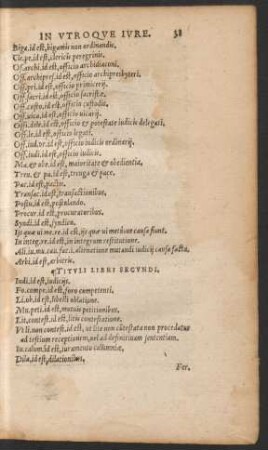 IN VTROQVE IVRE. 38
Biga. id est, bigamis non ordinandis.
Cle. pe. id est, clericis peregrinis.
Off. archi. id est, officio archidiaconi.
Off. archipres. id est, officio archipresbyteri.
Off. pri. id est, officio primicerij.
Off. sacri. id est, officio sacristæ.
Off. custo. id est, officio custodis.
Off. vica. id est, officio vicarij.
Offi. dele. id est, officio & potestate iudicis delegati.
Off. le. id est, officio legati.
Off. iud. or. id est, officio iudicis ordinarij.
Off. iudi. id est, officio iudicis.
Ma. & obe. id est, maioritate & obedientia.
Treu. & pa. id est, treuga & pace.
Pac. id est, pactis.
Transac. id est, transactionibus.
Postu. id est, postulando.
Procur. id est, procuratoribus.
Syndi. id est, syndico.
Ijs quæ vi me. ve. id est, ijs quæ vi metusve causa fiunt.
In integ. re. id est, in integrum restitutione.
Ali. iu. mu. cau. fac. i. alienatione mutandi iudicij causa facta.
Arbi. id est, arbitris.
¶TITVLI LIBRI SECVNDI.
Iudi. id est, iudicijs.
Fo. compe. id est, foro competenti.
Li. ob. id est, libelli oblatione.
Mu. peti. id est, mutuis petitionibus.
Lit. contest. id est, litis contestatione.
Vt lit. non contest. id est, vt lite non cōtestata non procedatur
ad testium receptionem, vel ad definitiuam sententiam.
In calum. id est, iuramento calumniæ,
Dila. id est, dilationibus,
Fer.